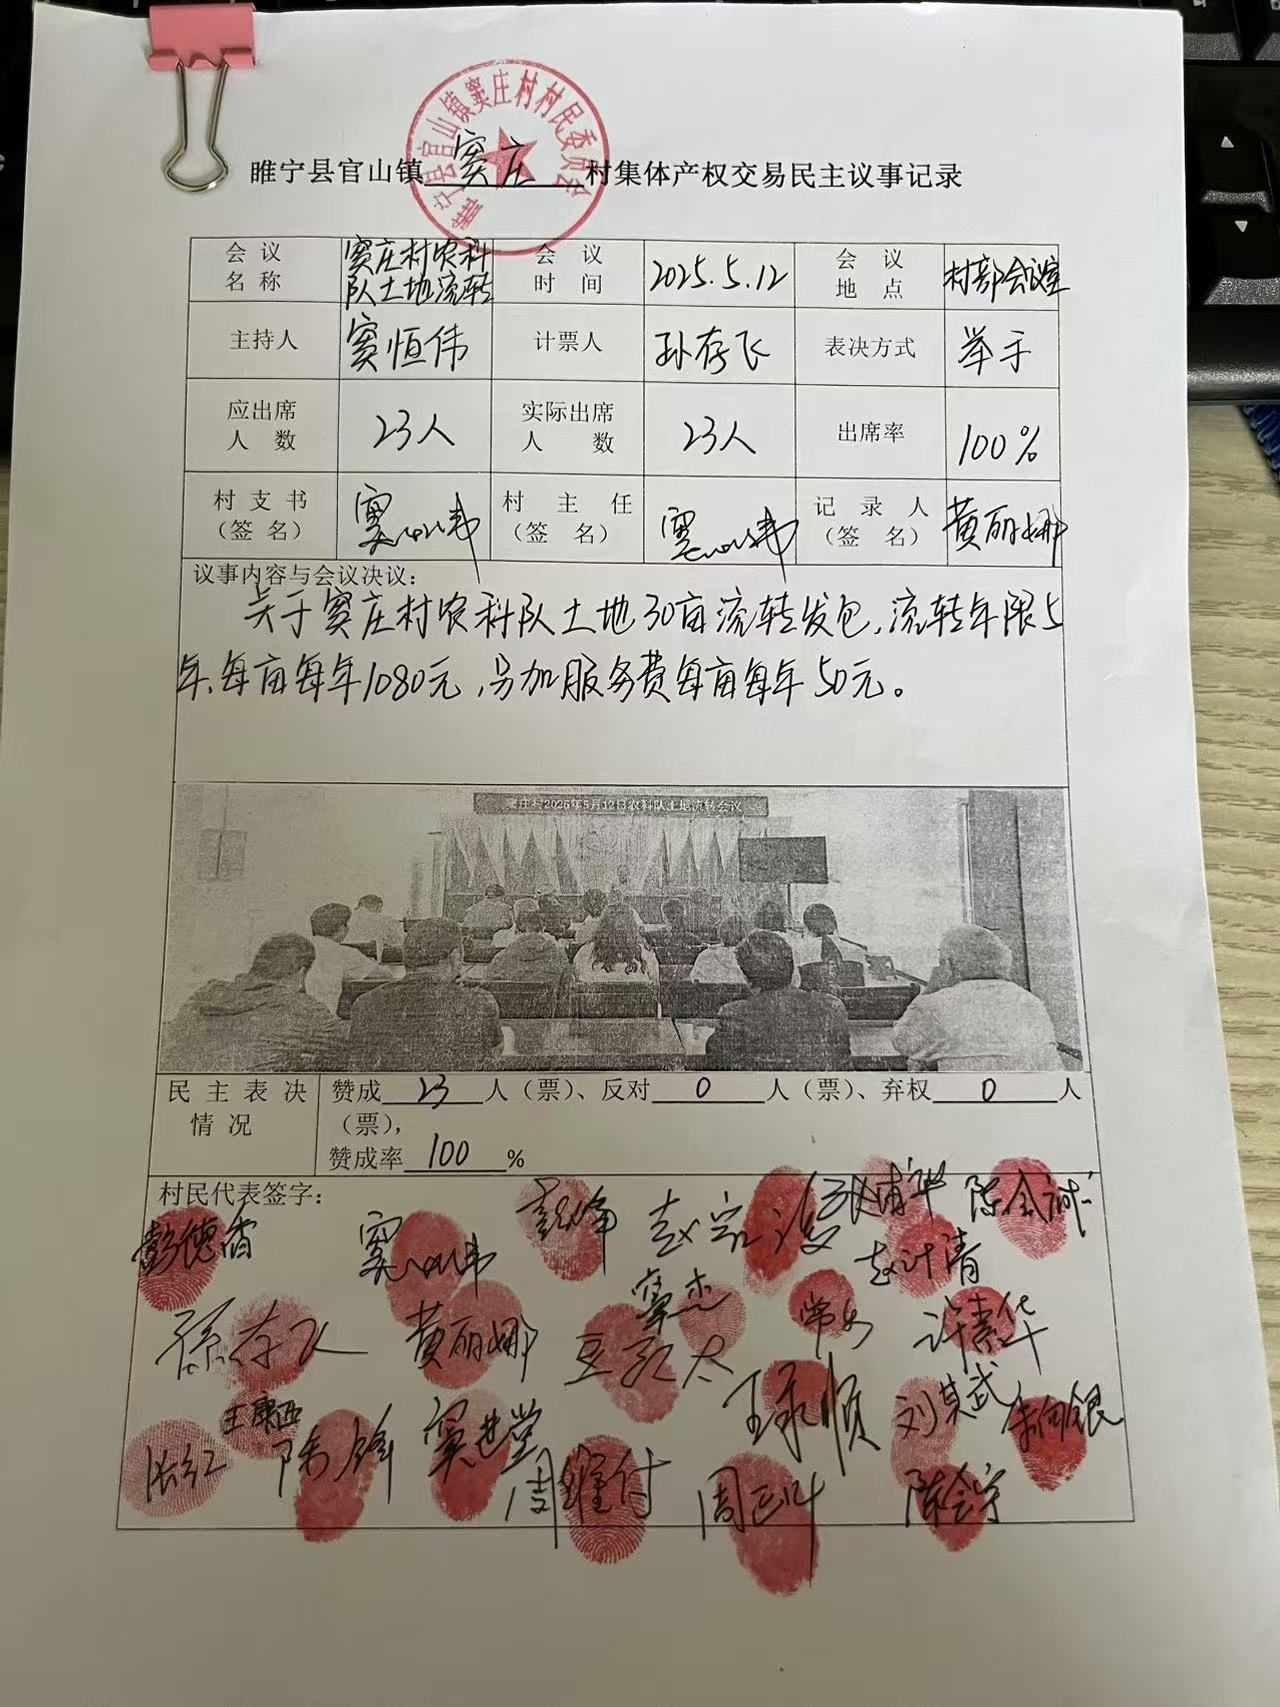 睢宁县官山镇窦庄村村民委员会
睢宁县官山镇 窦庄 村集体产权交易民主议事记录
会议名称 窦庄村农科队土地流转 会议时间 2025.5.12 会议地点 村部会议室
主持人 窦恒伟 计票人 孙存飞 表决方式 举手
应出席人数 23人 实际出席人数 23人 出席率 100%
村支书（签名） 村主任（签名） 记录人（签名） 黄丽娜
议事内容与会议决议：
关于窦庄村农科队土地30亩流转发包,流转年限5
年,每亩每年1080元,另加服务费每亩每年50元。
窦庄村2025年5月12日农科队土地流转会议
民主表决情况 赞成 23 人（票）、反对 0 人（票）、弃权 0 人
（票），
赞成率 100 %
村民代表签字：
彭德省 陈金诚
窦杰
黄丽娜 许素华
王康西 陈锋 窦进堂 王永顺 刘其武
张红 周维付 陈会宁